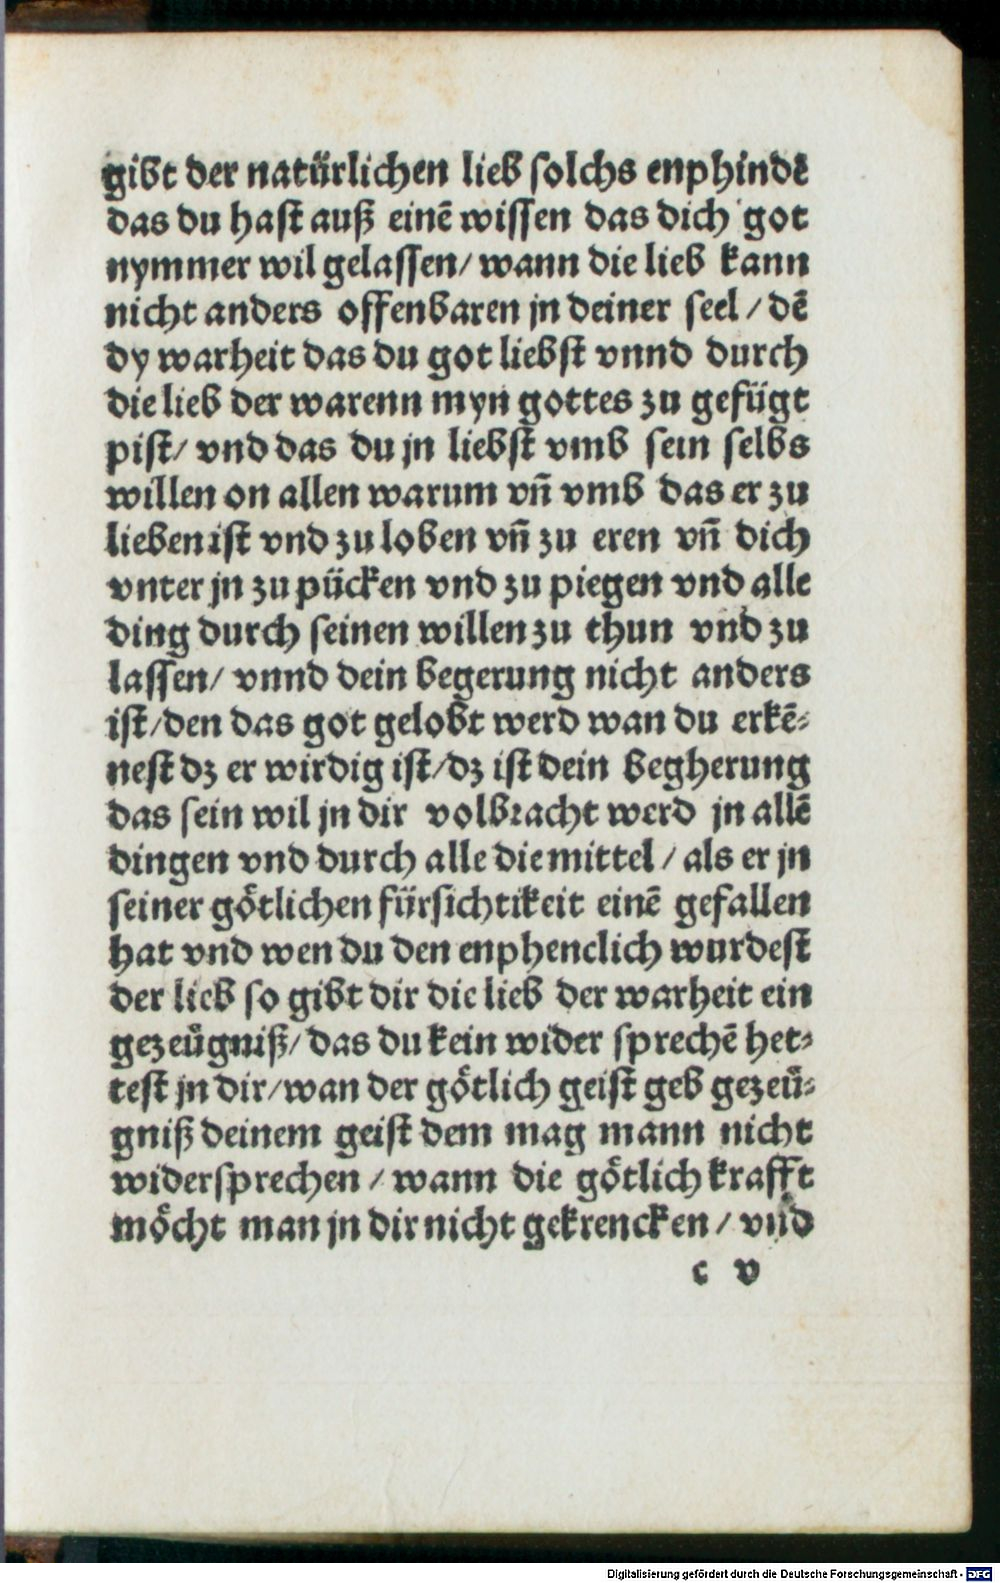 gibt der natürlichen lieb solchs enphindē
das du hast auß einē wissen das dich got
nymmer wil gelassen/ wann die lieb kann
nicht anders offenbaren jn deiner seel / dē
dy warheit das du got liebst vnnd durch
die lieb der warenn myn gottes zu gefügt
pist/ vnd das du jn liebst vmb sein selbs
willen on allen warum vn̄ vmb das er zu
lieben ist vnd zu loben vn̄ zu eren vn̄ dich
vnter jn zu pücken vnd zu piegen vnd alle
ding durch seinen willen zu thun vnd zu
lassen/ vnnd dein begerung nicht anders
ist/den das got gelobt werd wan du erkē⸗
nest dz er wirdig ist/dz ist dein begherung
das sein wil jn dir volbracht werd jn allē
dingen vnd durch alle die mittel / als er jn
seiner götlichen fürsichtikeit einē gefallen
hat vnd wen du den enphenclich wurdest
der lieb so gibt dir die lieb der warheit ein
gezeügniß/ das du kein wider sprechē het⸗
test jn dir/wan der götlich geist geb gezeü⸗
gniß deinem geist dem mag mann nicht
widersprechen / wann die götlich krafft
möcht man jn dir nicht gekrencken / vnd
c v
Digitalisierung gefördert durch die Deutsche Forschungsgemeinschaft - DFG